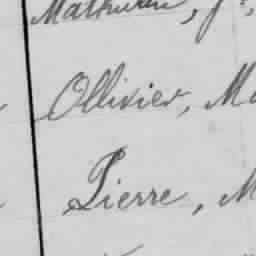 Mathurin, J
Ollivier, Ma
Pierre, M